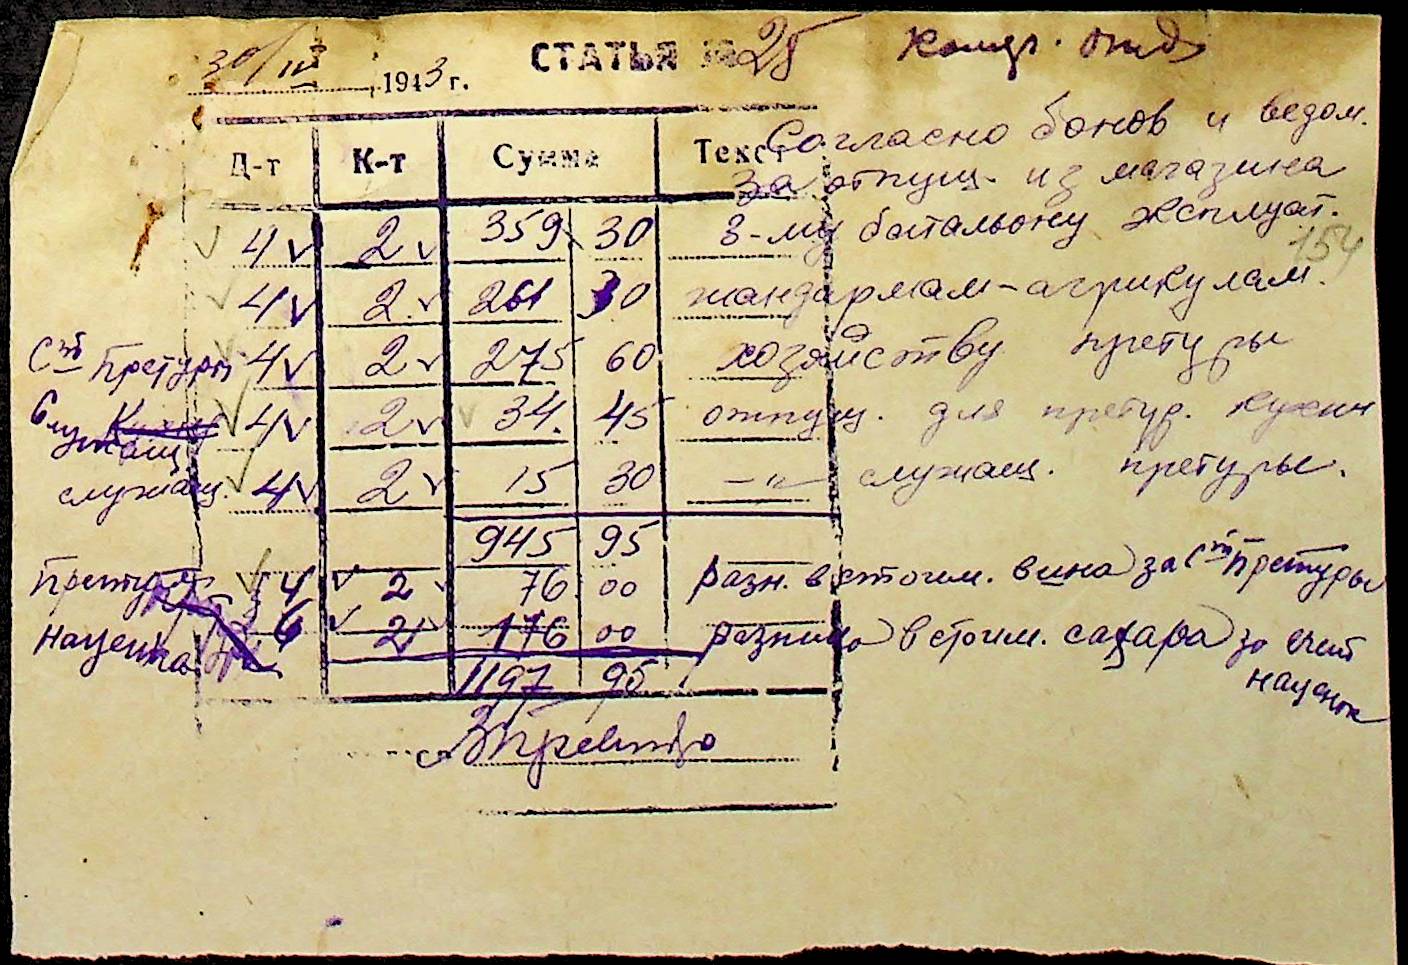 30/IV 1943 г. СТАТЬЯ № 25
Согласно бонов и ведом.
Д-т К-т Сумма Текст за отпущ. из магазина
4 2 359 30 3-му батальону эксплуат.
154
4 2 261 30 жандармам-агрикулам.
Сч Претуры 4 2 275 60 хозяйству претуры
Служащ 4 2 34. 45 отпущ. для претур. кухни
служащ. 4 2 15 30 -"- служащ. претуры.
945 95
Претура 4 2 76 00 разн. в стоим. вина за Сч Претуры
наценка 6 2 176 00 разница в стоим. сахара за счет наценок
1197 95